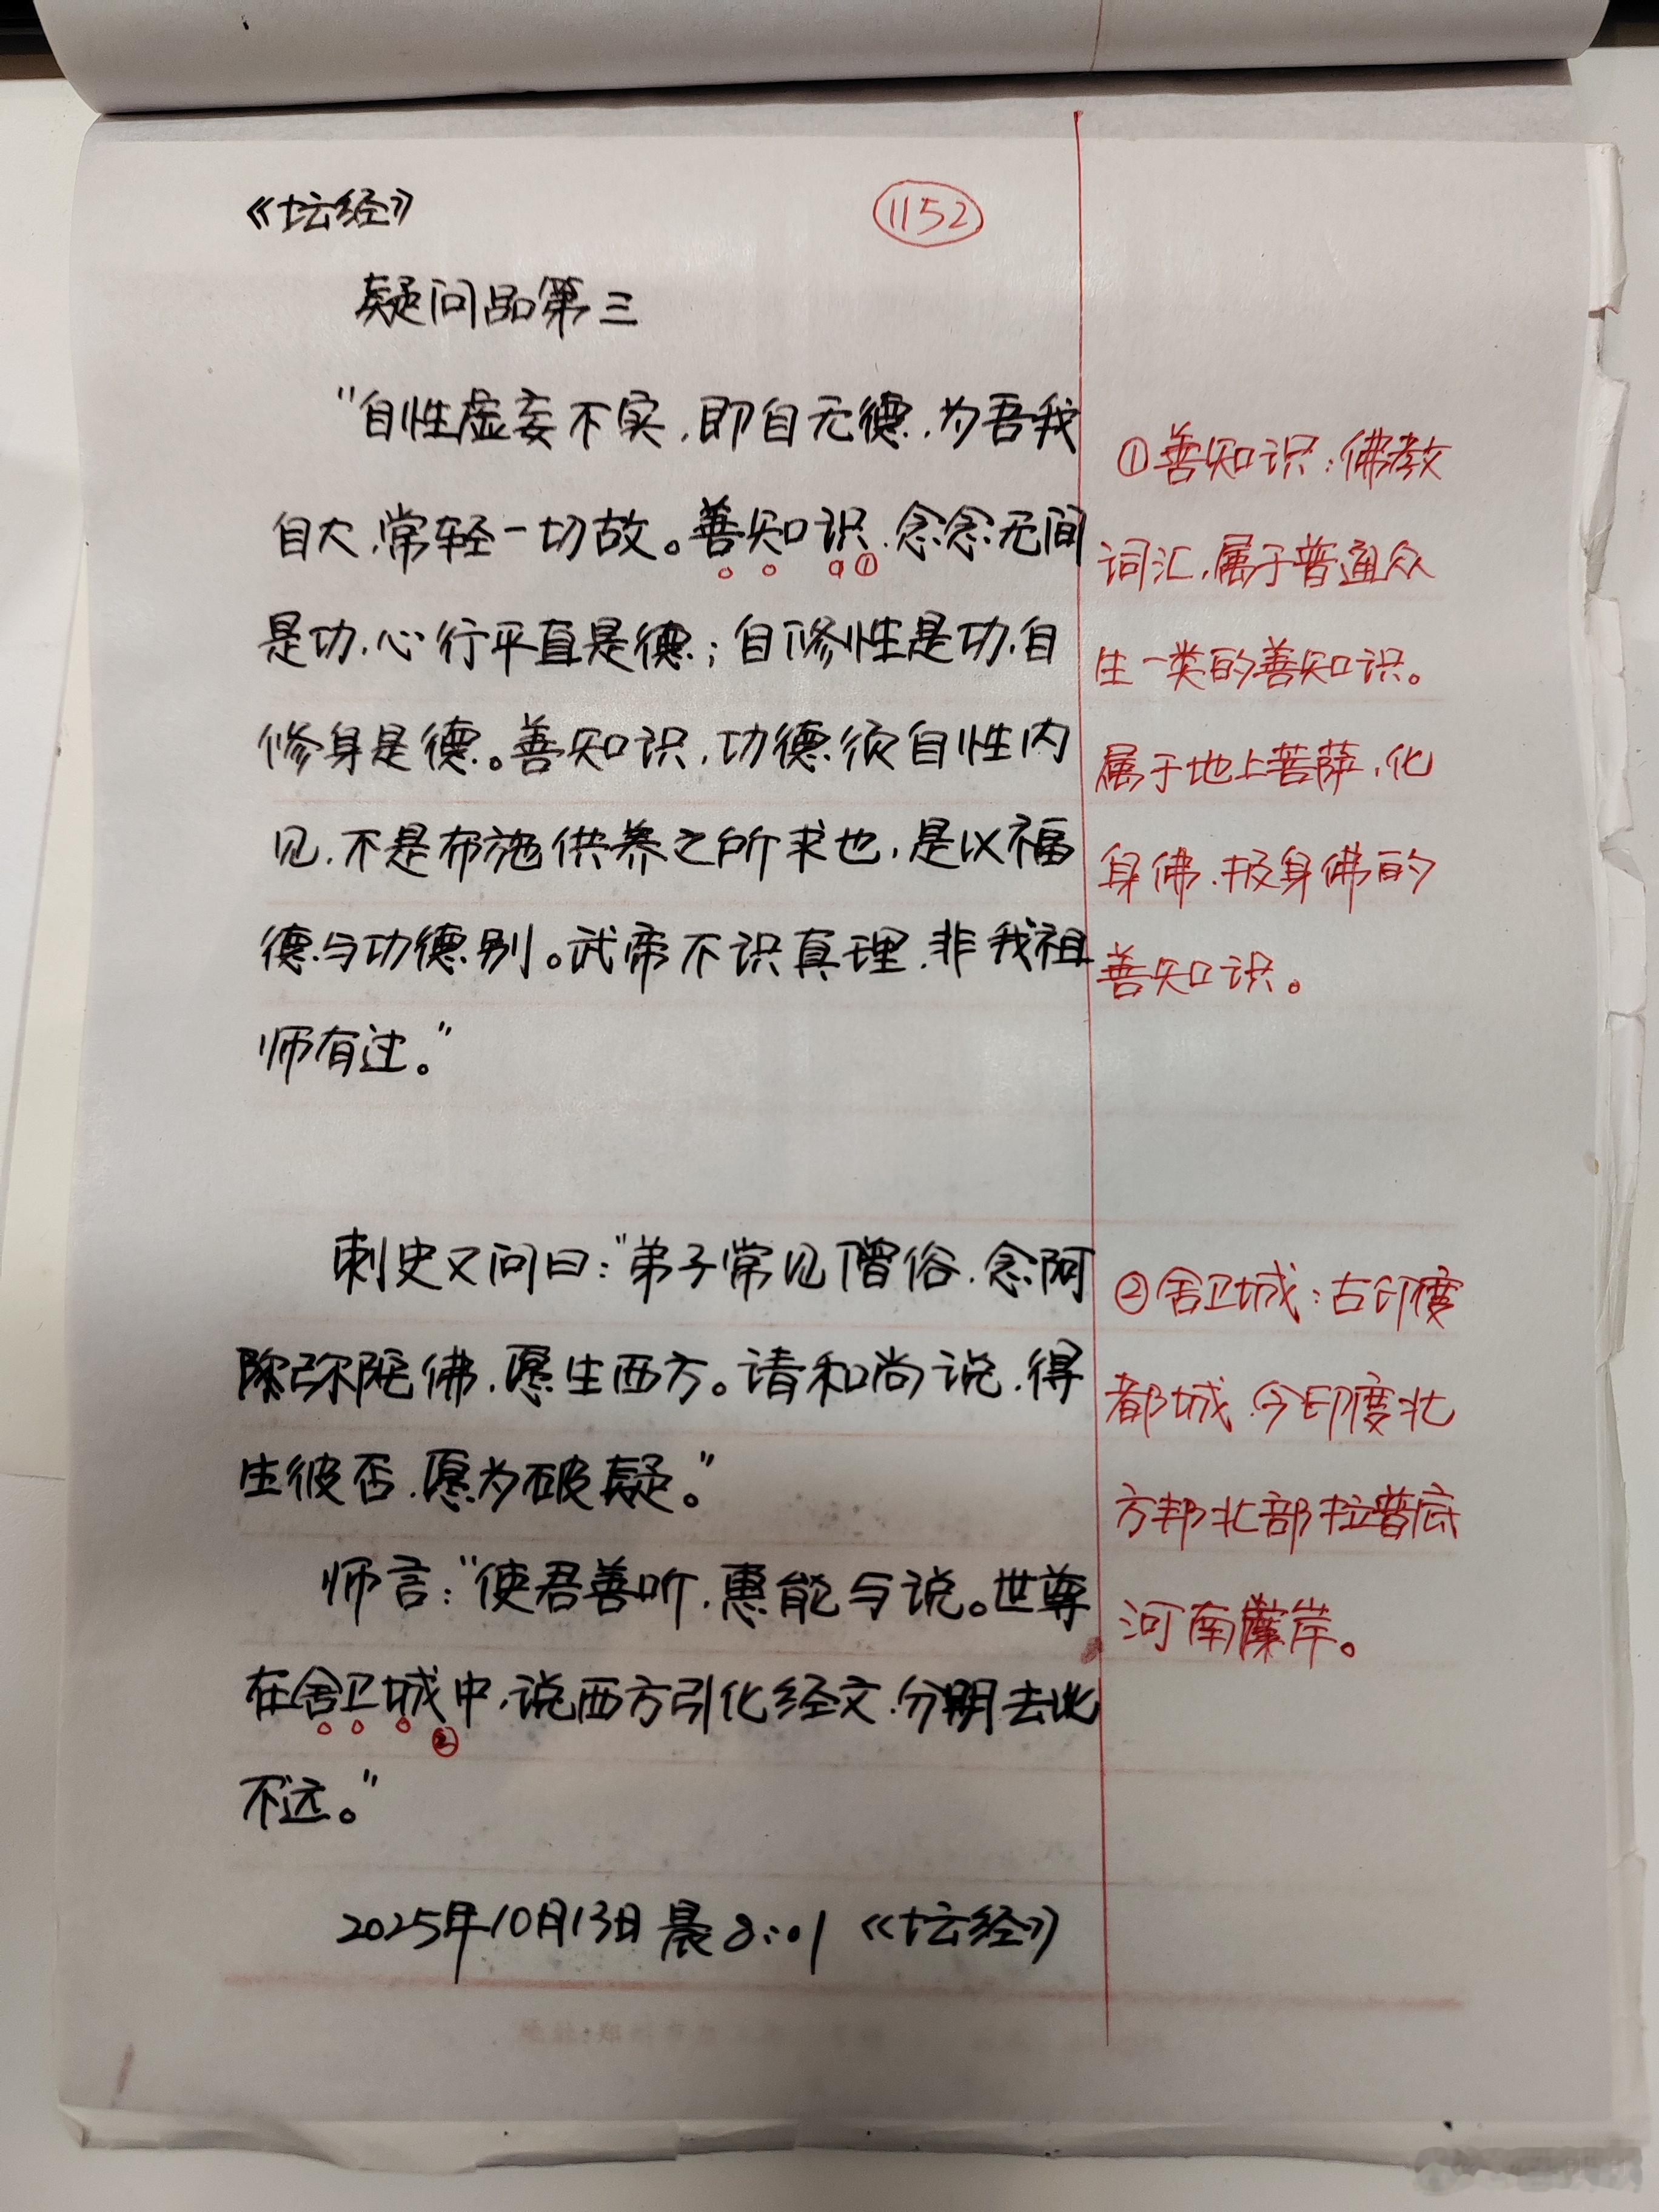 《坛经》
1152
疑问品第三
“自性虚妄不实，即自无德，为吾我
自大，常轻一切故。善知识①，念念无间
是功，心行平直是德；自修性是功，自
修身是德。善知识，功德须自性内
见，不是布施供养之所求也，是以福
德与功德别。武帝不识真理，非我祖
师有过。”
刺史又问曰：“弟子常见僧俗，念阿
弥陀佛，愿生西方。请和尚说，得
生彼否，愿为破疑。”
师言：“使君善听，惠能与说。世尊
在舍卫城②中，说西方引化经文，分明去此
不远。”
2025年10月13日晨8:01《坛经》
①善知识：佛教
词汇，属于普通众
生一类的善知识。
属于地上菩萨，化
身佛、报身佛的
善知识。
②舍卫城：古印度
都城，今印度北
方邦北部拉普底
河南岸。